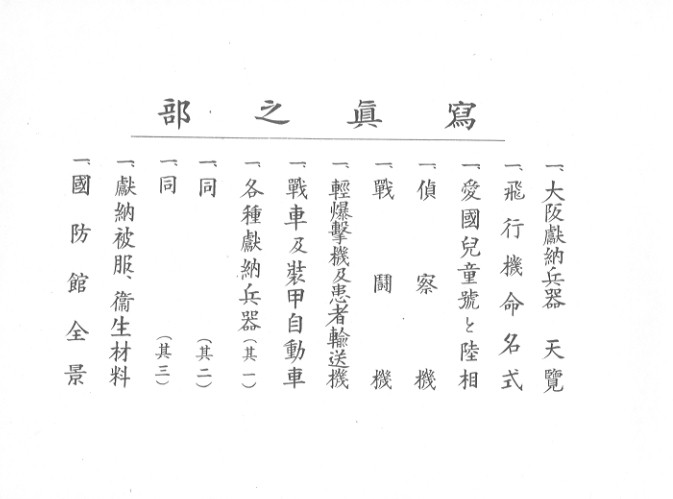 寫眞之部
一、大阪獻納兵器 天覽
一、飛行機命名式
一、愛國兒童號と陸相
一、偵察機
一、戰鬪機
一、輕爆擊機及患者輸送機
一、戰車及裝甲自動車
一、各種獻納兵器（其一）
一、同（其二）
一、同（其三）
一、獻納被服、衞生材料
一、國防館全景